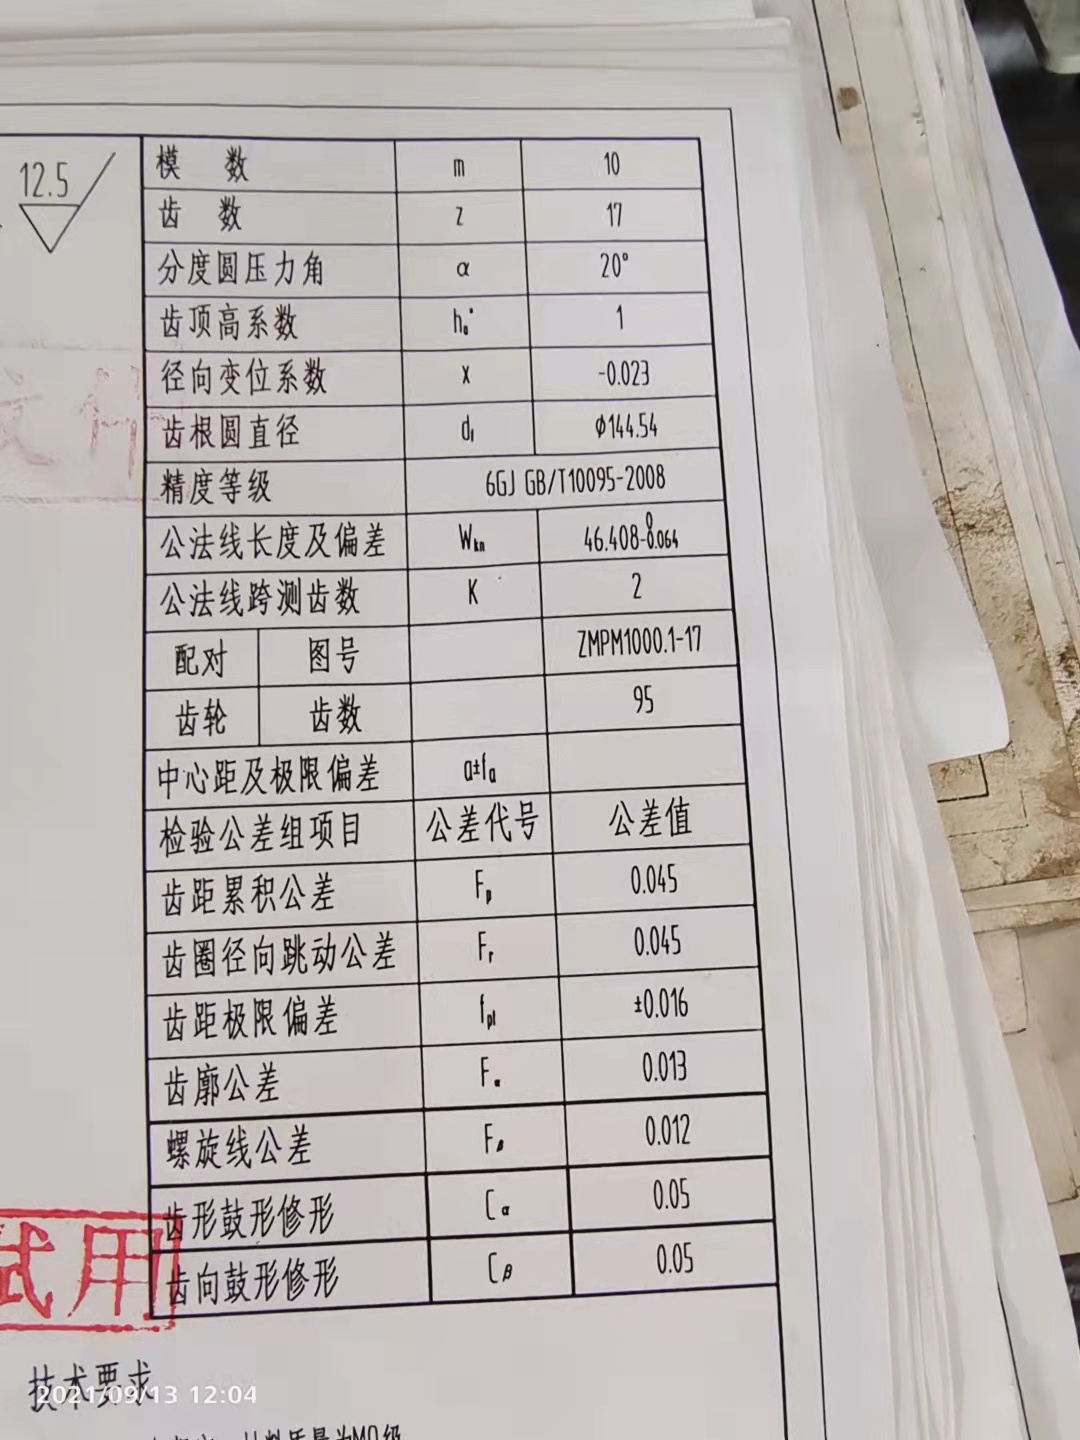 12.5
模 数 m 10
齿 数 z 17
分度圆压力角 α 20°
齿顶高系数 hₐ* 1
径向变位系数 x -0.023
齿根圆直径 df φ144.54
精度等级 6GJ GB/T10095-2008
公法线长度及偏差 Wkn 46.408 0 -0.064
公法线跨测齿数 K 2
配对 图号 ZMPM1000.1-17
齿轮 齿数 95
中心距及极限偏差 a±fa
检验公差组项目 公差代号 公差值
齿距累积公差 Fp 0.045
齿圈径向跳动公差 Fr 0.045
齿距极限偏差 fpt ±0.016
齿廓公差 Fα 0.013
螺旋线公差 Fβ 0.012
齿形鼓形修形 Cα 0.05
齿向鼓形修形 Cβ 0.05
文件
试用
技术要求
2021/09/13 12:04
材料质量为MQ级